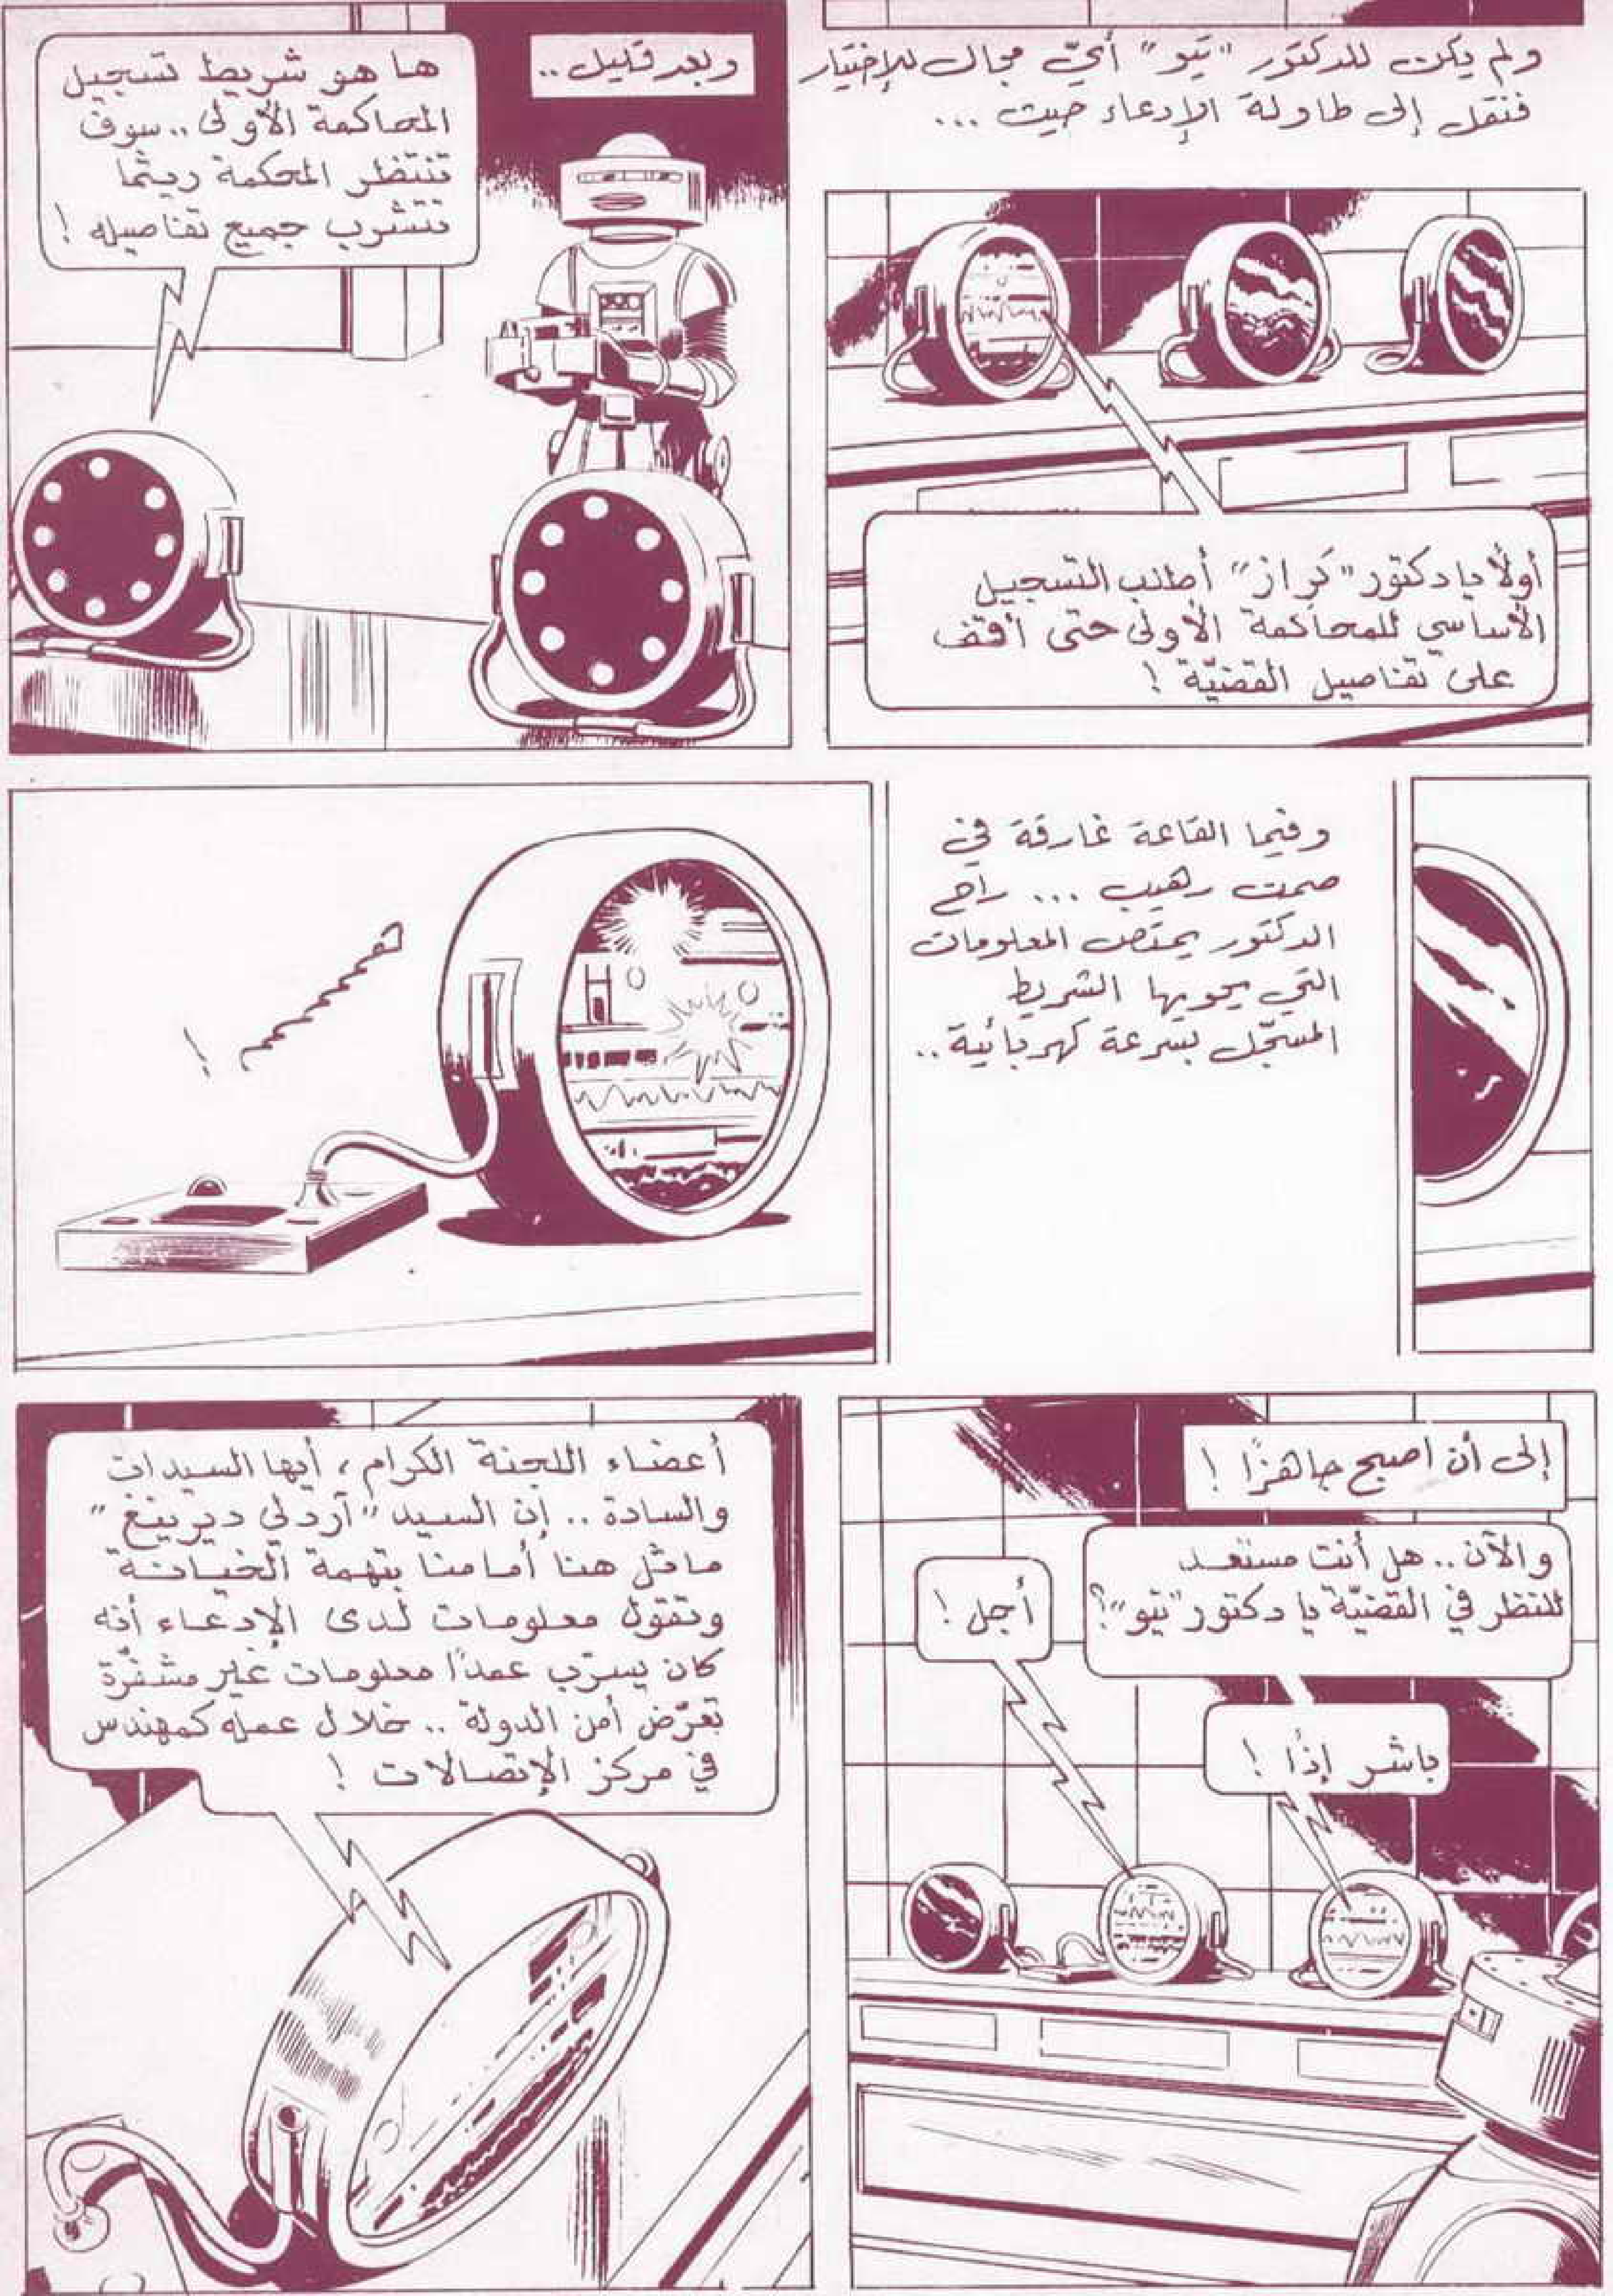 ولم يكن للدكتور "تيو" أيّ مجال للإختيار
فنقل إلى طاولة الإدعاء حيث ...
أولًا يا دكتور "كراز" أطلب التسجيل
الأساسي للمحاكمة الأولى حتى أقف
على تفاصيل القضيّة !
وبعد قليل ..
ها هو شريط تسجيل
المحاكمة الأولى .. سوف
تنتظر المحكمة ريثما
تتشرب جميع تفاصيله !
وفيما القاعة غارقة في
صمت رهيب ... راح
الدكتور يمتص المعلومات
التي يحويها الشريط
المسجّل بسرعة كهربائية ..
إلى أن اصبح جاهزًا !
والآن .. هل أنت مستعد
للنظر في القضيّة يا دكتور "تيو"؟
أجل !
باشر إذًا !
أعضاء اللجنة الكرام ، أيها السيدات
والسادة .. إن السيد "آردلي ديرينغ"
ماثل هنا أمامنا بتهمة الخيانة
وتقول معلومات لدى الإدعاء أنه
كان يسرّب عمدًا معلومات غير مشفّرة
تعرّض أمن الدولة .. خلال عمله كمهندس
في مركز الإتصالات !